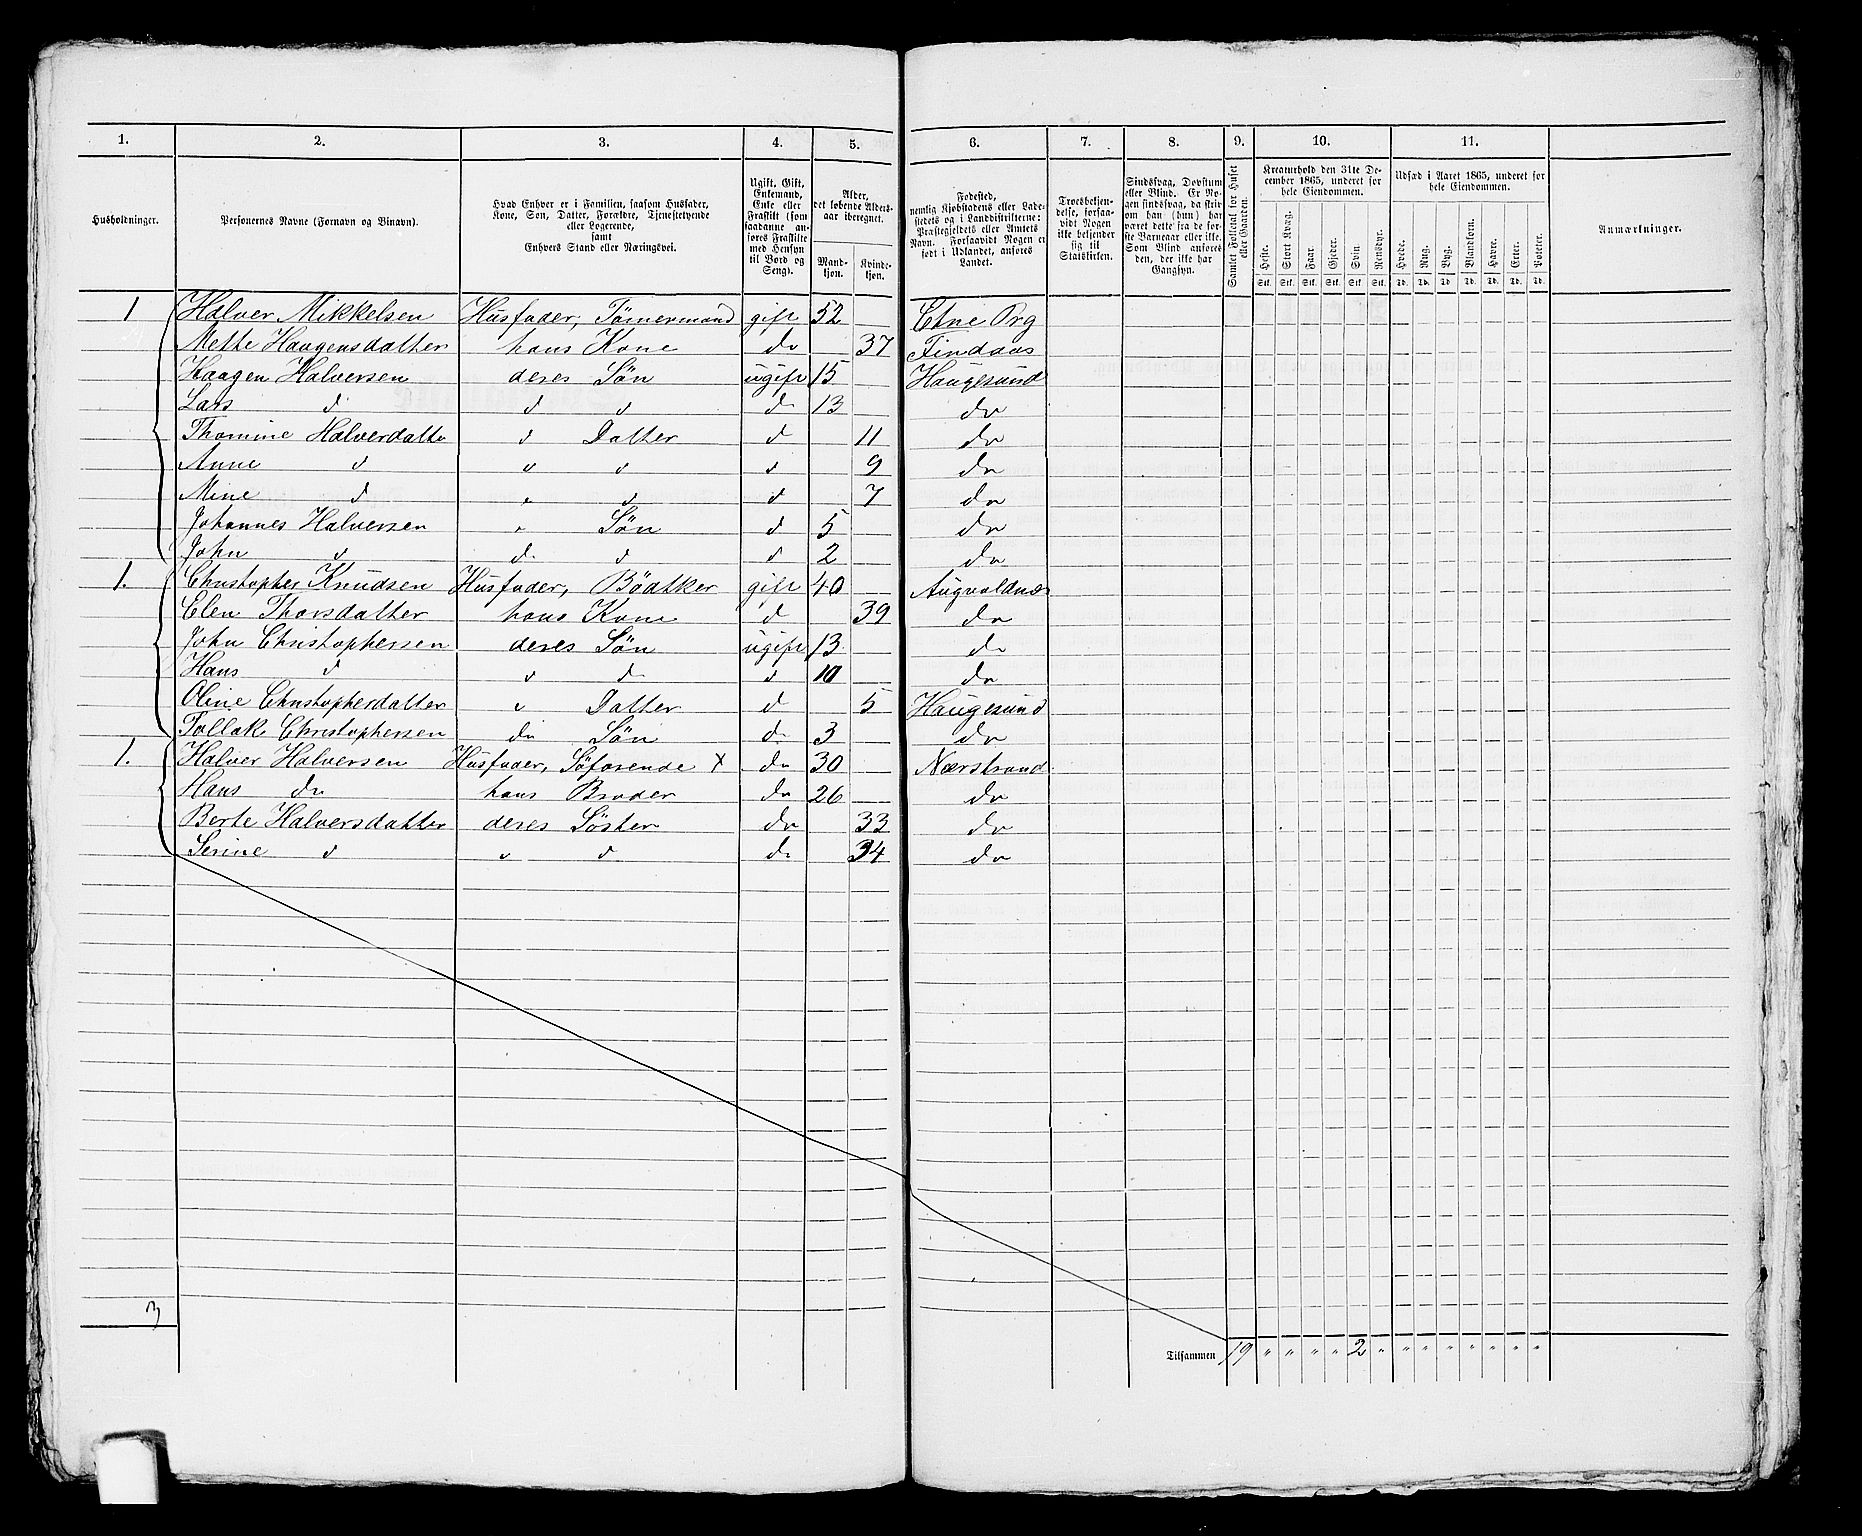 1. 2. 3. 4. 5. 6. 7. 8. 9. 10. 11.
Husholdninger.
Personernes Navne (Fornavn og Binavn).
Hvad Enhver er i Familien, saasom Husfader,
Kone, Søn, Datter, Forældre, Tjenestetyende
eller Logerende,
samt
Enhvers Stand eller Næringsvei.
Ugift, Gift,
Enkemand,
Enke eller
Fraskilt (som
saadanne an-
føres Fraskilte
med Hensyn
til Bord og
Seng).
Alder,
det løbende Alders-
aar iberegnet.
Mand-
kjøn.
Kvinde-
kjøn.
Fødested,
nemlig Kjøbstadens eller Lade-
stedets og i Landdistrikterne:
Præstegjeldets eller Amtets
Navn. Forsaavidt Nogen er
født i Udlandet, anføres
Landet.
Troesbekjen-
delse, forsaa-
vidt Nogen
ikke bekjender
sig til
Statskirken.
Sindssvag, Døvstum
eller Blind. Er No-
gen sindssvag, da skriv
om han (hun) har
været dette fra de før-
ste Barneaar eller ikke.
Som Blind anføres
den, der ikke har
Gangsyn.
Samlet Folketal for Huset
eller Gaarden.
Kreaturhold den 31te De-
cember 1865, underet for
hele Eiendommen.
Heste. Stort Kvæg. Faar. Gjeder. Svin Rensdyr.
Stk. Stk. Stk. Stk. Stk. Stk.
Udsæd i Aaret 1865, underet for
hele Eiendommen.
Hvede. Rug. Byg. Blandkorn. Havre. Erter. Poteter.
Td. Td. Td. Td. Td. Td. Td.
Anmærkninger.
1 Halver Mikkelsen Husfader, Tømermand gift 52 Etne Prg
Mette Haagensdatter hans Kone do 37 Findaas
Haagen Halversen deres Søn ugift 15 Haugesund
Lars d d d d 13 do
Thomine Halverdatte d Datter d 11 do
Anne d d d d 9 do
Mine d " d d 7 do
Johannes Halversen " Søn d 5 do
John d d d d 2 do
1. Christopher Knudsen Husfader, Bödtker gift 40 Augvaldnæs
Elen Thorsdatter hans Kone d 39 do
John Christophersen deres Søn ugift 13 do
Hans d d d d 10 do
Oline Christopherdatter d Datter d 5 Haugesund
Tollak Christophersen do Søn d 3 do
1. Halver Halversen Husfader, Söfarende X do 30 Nærstrand
Hans do hans Broder do 26 do
Berte Halversdatter deres Söster do 33 do
Serine d d d d 34 do
3
Tilsammen 19 " " " " 2 " " " " " " " "